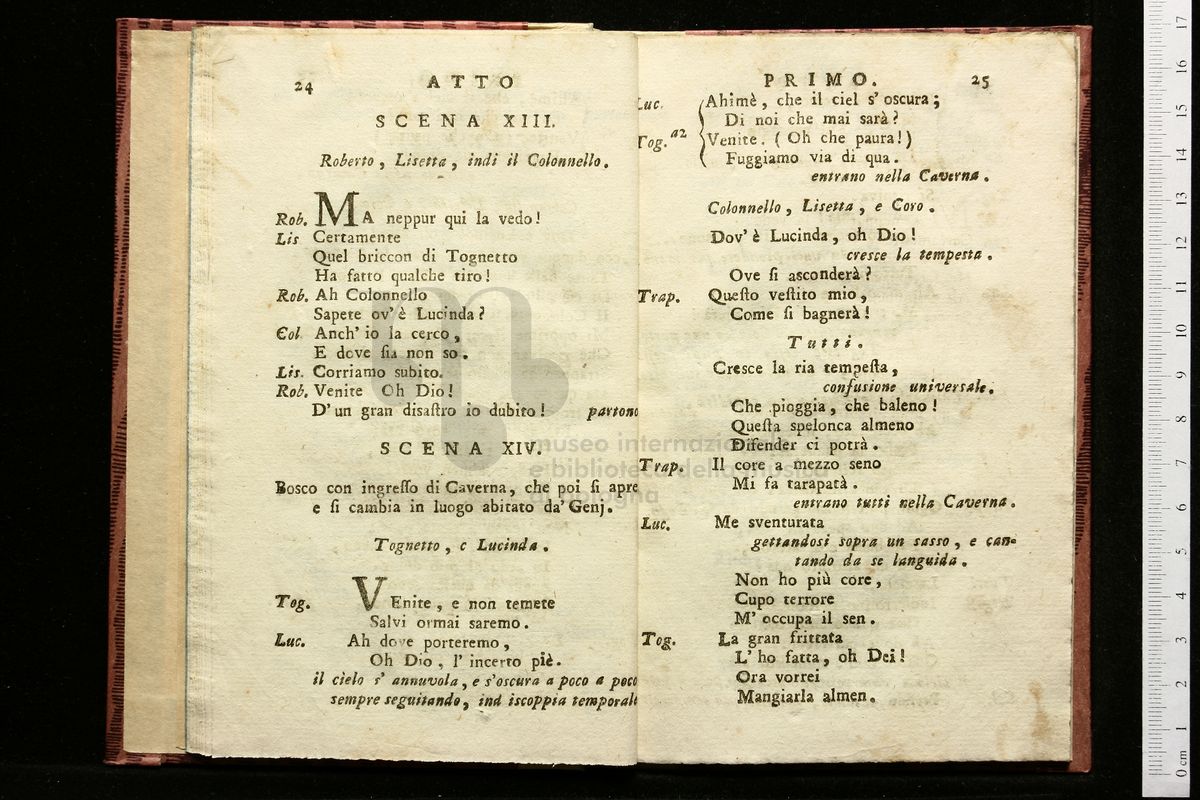 24 ATTO
SCENA XIII.
Roberto, Lisetta, indi il Colonnello.
Rob. MA neppur qui la vedo!
Lis Certamente
Quel briccon di Tognetto
Ha fatto qualche tiro!
Rob. Ah Colonnello
Sapete ov' è Lucinda?
Col. Anch' io la cerco,
E dove ſia non so.
Lis. Corriamo subito.
Rob. Venite Oh Dio!
D' un gran disaſtro io dubito! partono
SCENA XIV.
Bosco con ingreſſo di Caverna, che poi ſi apre
e ſi cambia in luogo abitato da' Genj.
Tognetto, e Lucinda.
Tog. VEnite, e non temete
Salvi ormai saremo.
Luc. Ah dove porteremo,
Oh Dio, l' incerto piè.
il cielo s' annuvola, e s'oscura a poco a poco
sempre seguitando, ind iscoppia temporale
PRIMO. 25
Luc. Ahimè, che il ciel s' oscura;
Di noi che mai sarà?
Tog. a2 Venite. (Oh che paura!)
Fuggiamo via di qua.
entrano nella Caverna.
Colonnello, Lisetta, e Coro.
Dov' è Lucinda, oh Dio!
cresce la tempesta.
Ove ſi asconderà?
Trap. Queſto veſtito mio,
Come ſi bagnerà!
Tutti.
Cresce la ria tempeſta,
confusione universale.
Che pioggia, che baleno!
Queſta spelonca almeno
Difender ci potrà.
Trap. Il core a mezzo seno
Mi fa tarapatà.
entrano tutti nella Caverna.
Luc. Me sventurata
gettandosi sopra un sasso, e can-
tando da se languida.
Non ho più core,
Cupo terrore
M' occupa il sen.
Tog. La gran frittata
L' ho fatta, oh Dei!
Ora vorrei
Mangiarla almen.
museo internazionale
e biblioteca della musica
di bologna
0 cm 1 2 3 4 5 6 7 8 9 10 11 12 13 14 15 16 17